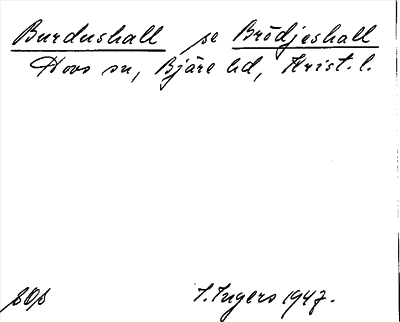 Burdushall se Brödjeshall
Hovs sn, Bjäre hd, Krist. l.
I. Ingers 1947.